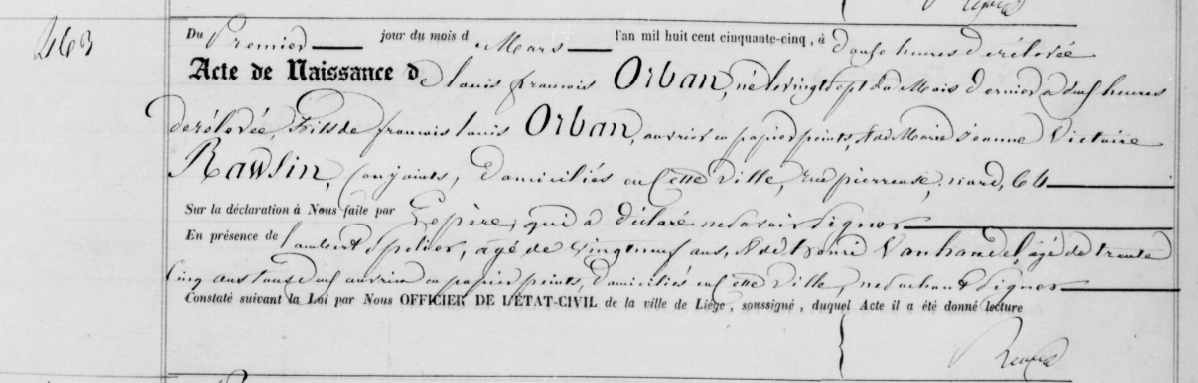 463
Du Premier jour du mois d Mars l'an mil huit cent cinquante-cinq, à douse heures derélevée
Acte de Naissance de Louis francois Orban, né levingtsept du Mois dernier à heures
derélevée, fils de francois Louis Orban, ouvrier en papier peints, & de Marie Jeanne Victoire
Rawsin, Conjoints, Domiciliés en Cette Ville, rue pierreuse, nord, 64
Sur la déclaration à Nous faite par Lepère, qui a déclaré nesavoir Signer
En présence de Lambert Spelier, agé de vingtneuf ans, & de Henri Vanhandel, agé de trente
Cinq ans tous deux ouvriers en papier peints, domiciliés en Cette Ville, nesachant Signer
Constaté suivant la Loi par Nous OFFICIER DE L'ÉTAT-CIVIL de la ville de Liège, soussigné, duquel Acte il a été donné lecture